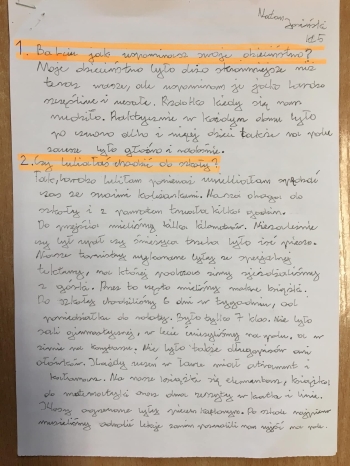 Mateusz
kl.5
1. Babciu jak wspominasz swoje dzieciństwo?
Moje dzieciństwo było dużo skromniejsze niż
teraz wasze, ale wspominam je jako bardzo
szczęśliwe i wesołe. Rzadko kiedy się nam
nudziło. Praktycznie w każdym domu było
po czworo albo i więcej dzieci także na polu
zawsze było głośno i radośnie.
2. Czy lubiłaś chodzić do szkoły?
Tak, bardzo lubiłam ponieważ uwielbiałam spędzać
czas ze swoimi koleżankami. Nasza droga do
szkoły i z powrotem trwała kilka godzin.
Do przejścia mieliśmy kilka kilometrów. Niezależnie
czy był upał czy śnieżyca trzeba było iść pieszo.
Nasze tornistry wykonane były ze specjalnej
tektury, na której podczas zimy zjeżdżaliśmy
z górki. Przez to często mieliśmy mokre książki.
Do szkoły chodziliśmy 6 dni w tygodniu, od
poniedziałku do soboty. Było tylko 7 klas. Nie było
sali gimnastycznej, w lecie ćwiczyliśmy na polu, a w
zimie na korytarzu. Nie było także długopisów ani
ołówków. Każdy uczeń w ławce miał atrament i
kałamarz. Na nasze książki się elementarz, książka
do matematyki oraz dwa zeszyty w kratkę i linie.
Klasy ogrzewane były piecem kaflowym. Po szkole najpierw
musieliśmy odrobić lekcje zanim pozwolili nam wyjść na pole.